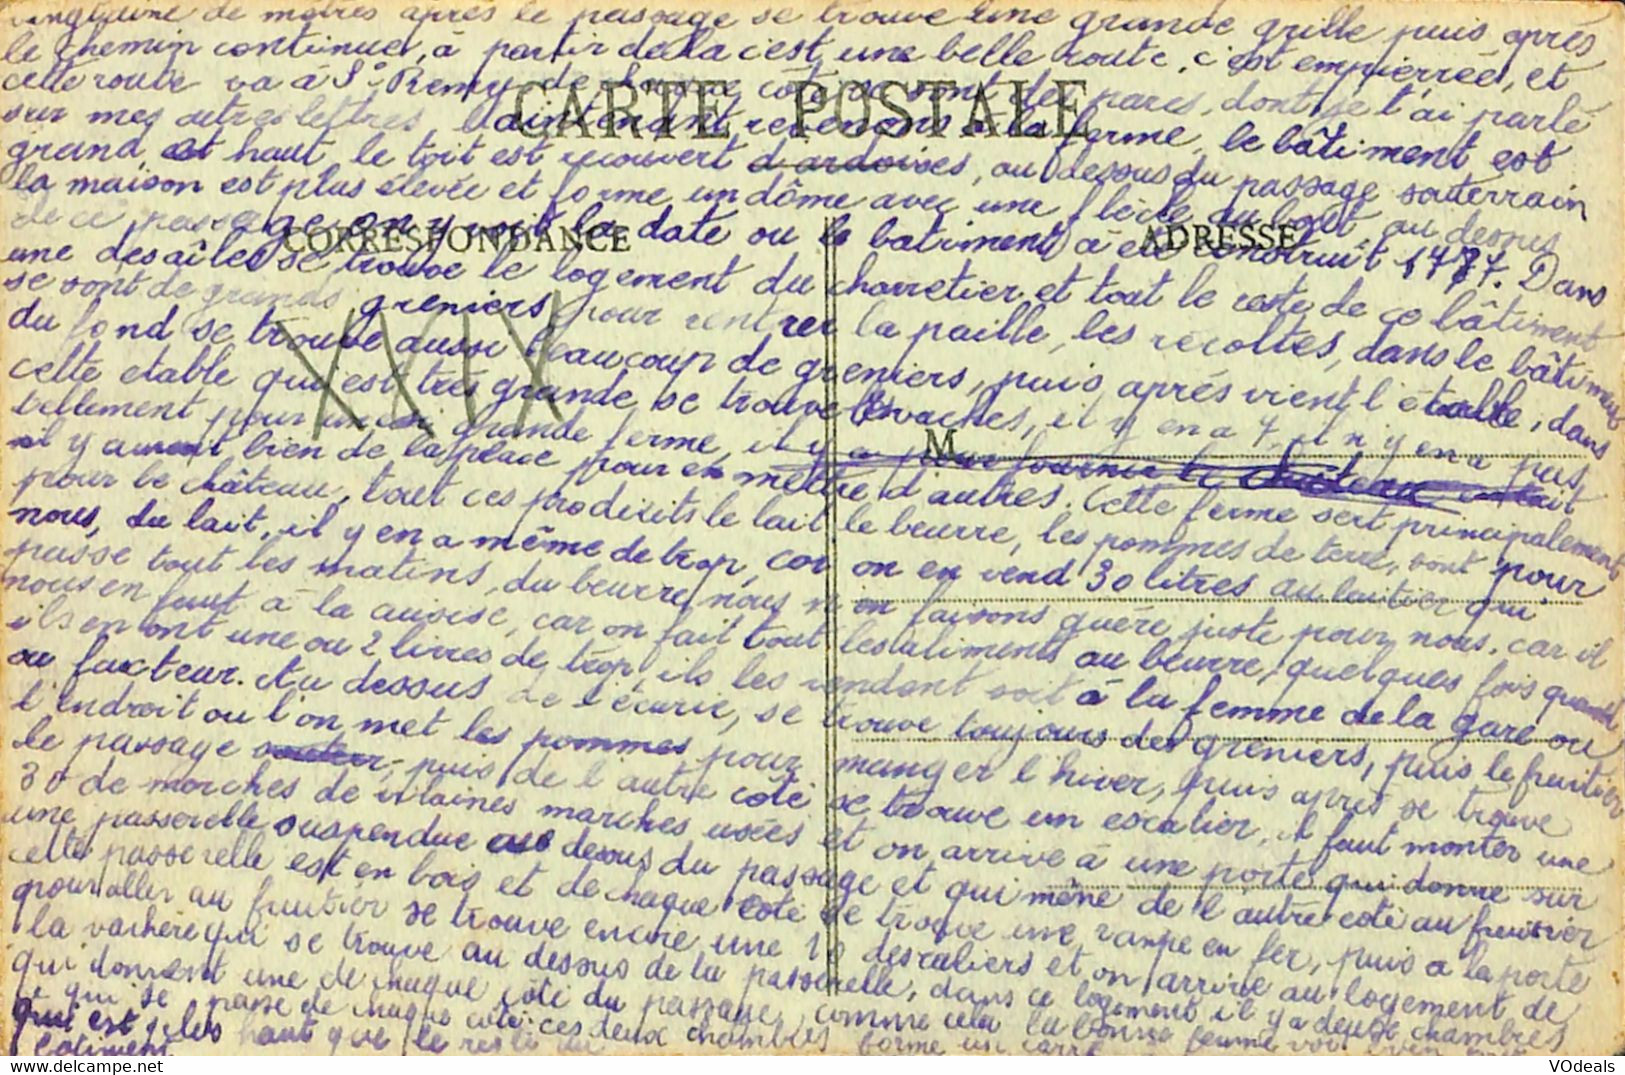 vingtaine de mètres après le passage se trouve une grande grille puis après
le chemin continue, à partir de la c'est une belle route, c'est empierrée, et
cette route va à St Remy, de chaque côté se sont des parcs, dont je t'ai parlé
CARTE POSTALE
sur mes autres lettres, maintenant revenons à la ferme, le bâtiment est
grand, et haut, le toit est recouvert d'ardoises, au dessus du passage souterrain
la maison est plus élevée et forme un dôme avec une flèche au bout au dessus
de ce passage on y voit la date ou le batiment à été construit 1777. Dans
CORRESPONDANCE ADRESSE
une des aîles se trouve le logement du charretier et tout le reste de ce bâtiment
se sont de grands greniers pour rentrer la paille, les récoltes, dans le bâtiment
du fond se trouve aussi beaucoup de greniers, puis après vient l'étable, dans
cette etable qui est très grande se trouve les vaches, il y en a 7, il n'y en a pas
XXIX
tellement pour une si grande ferme, il y a pour fournir le château en lait
M
il y aurait bien de la place pour en mettre d'autres. Cette ferme sert principalement
pour le château, tout ces prodixits le lait le beurre, les pommes de terre, sont pour
nous, du lait, il y en a même de trop, car on en vend 30 litres au laitier qui
passe tout les matins, du beurre, nous n'en faisons guère juste pour nous, car il
nous en faut à la cuisise, car on fait tout les aliments au beurre, quelques fois quand
ils en ont une ou 2 livres de trop, ils les vendent soit à la femme de la gare ou
au facteur. Au dessus de l'écurie, se trouve toujours des greniers, puis le fruitier
l'endroit ou l'on met les pommes pour manger l'hiver, puis après se trouve
le passage souterr, puis de l'autre coté se trouve un escalier, il faut monter une
30 de marches de vilaines marches usées et on arrive à une porte qui donne sur
une passerelle suspendue au dessus du passage et qui mène de l'autre coté au fruitier
cette passerelle est en bois et de chaque coté se trouve une rampe en fer, puis a la porte
pour aller au fruitier se trouve encore une 10 d'escaliers et on arrive au logement de
la vachère qui se trouve au dessus de la passerelle, dans ce logement il y a deux chambres
qui donnent une de chaque côté du passage, comme cela la bonne femme voi bien tout
ce qui se passe de chaque coté ces deux chambres forme un carré
qui est plus haut que le reste du
batiment
© VOdeals